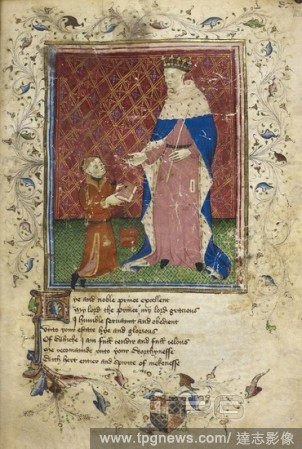 ye and noble prince excellent
My lord the prince my lord gracious
I humble servaunt and obedient
Unto your estate hye and glorious
Of whiche I am full tendir and full Ielous
Me recomaunde unto your worthynesse
With hert entier and spirite of mekenesse
www.tpgnews.com / 達志影像